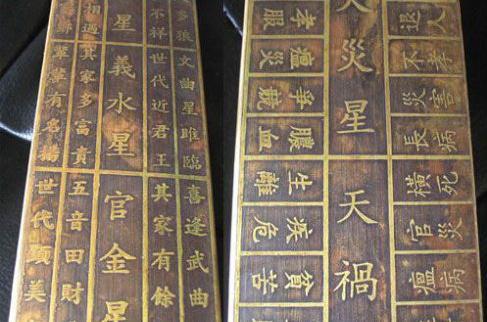 多狼 文曲星雖臨 喜逢武曲
不祥 世代近君王 其家有餘
星 義水星 官金星
相遇 其家多富貴 五音田財
輩輩有名揚 世代顯美
退人 不孝 災害 長病 橫死 官災 瘟病
災星 天禍
孝服 瘟災 爭競 膿血 生離 危 貧苦